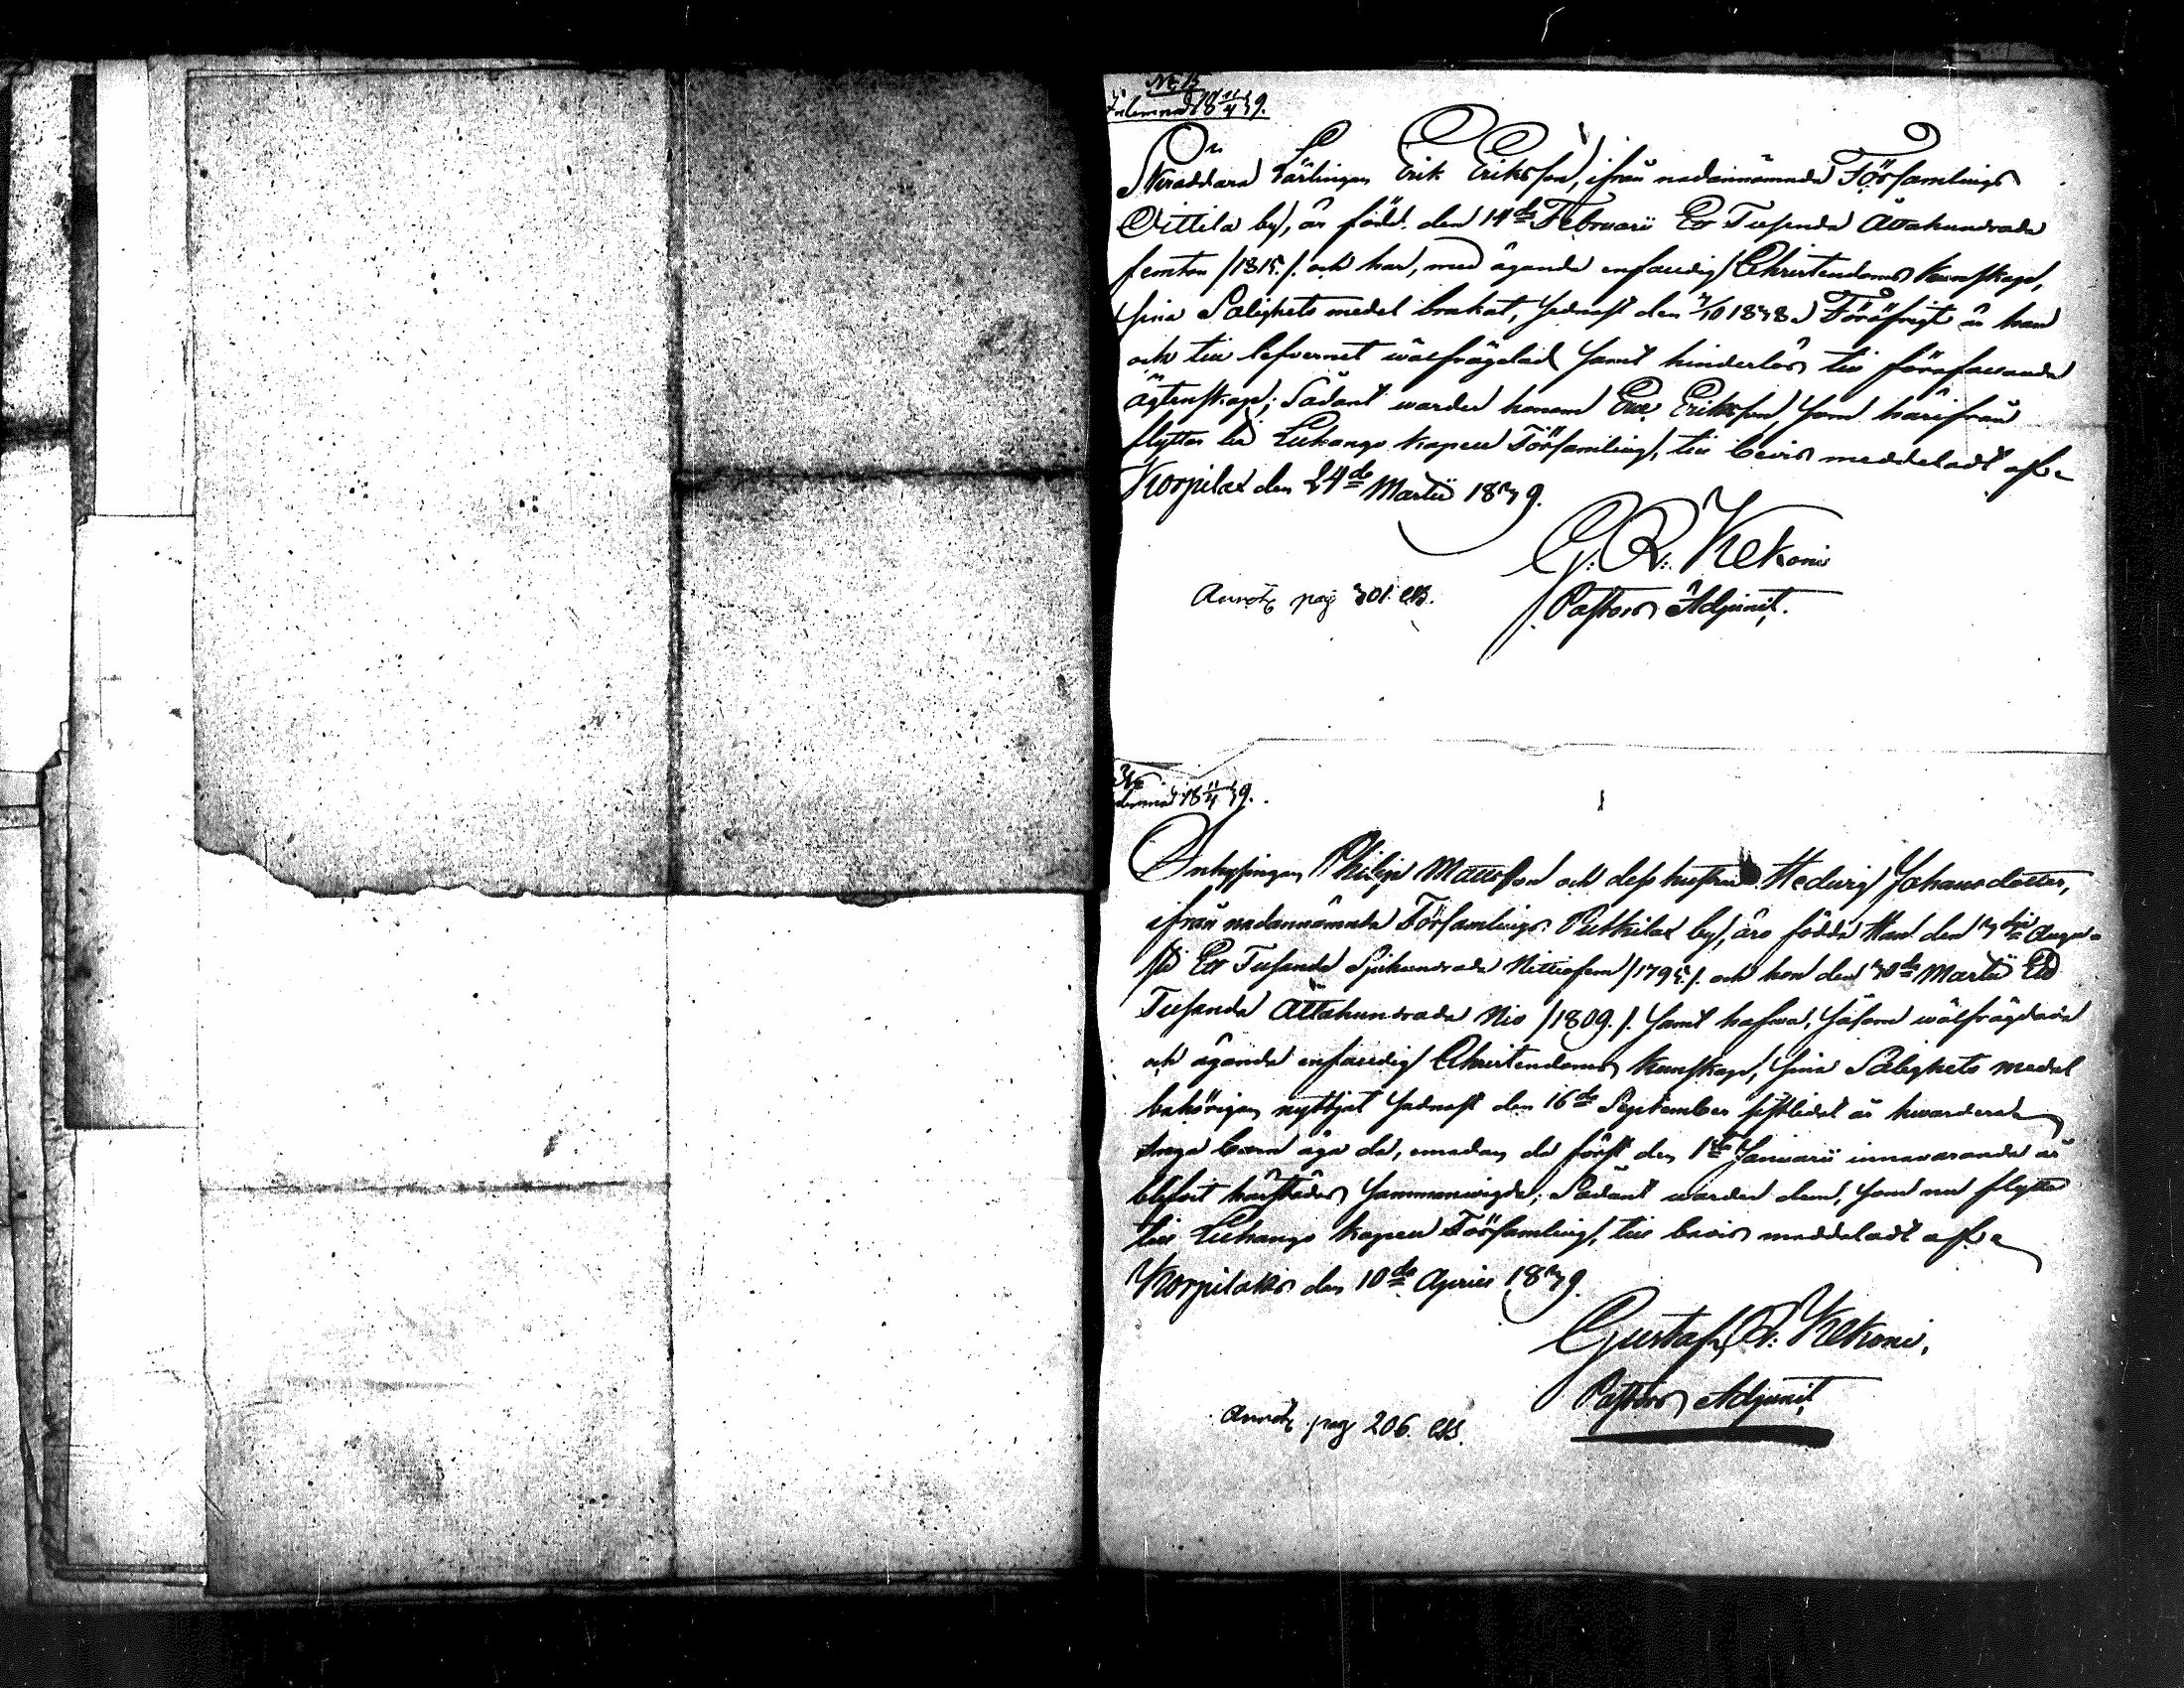 No 15
Inlemnad 18 11/4 39.
Skräddare Lärlingen Erik Eriksson, ifrån nedannämnde Församlings
Oittila by, är född den 14de Februarii Ett Tusende Åttahundrade
femton /1815./. och har, med ägande enfaldig Christendoms kunskap,
sina Salighets medel brukat, sednast den 7/10 1838. Föröfrigt är han
och till lefvernet wälfrägdad samt hinderlös till föräfwande
ägtenskap; Sådant warder honom Erik Eriksson, som härifrån
flyttar till Leukango kapell Församling, till bevis meddeladt af
Korpilax den 24de Martii 1839.
G. R: Kekoni
Pastors Adjunct.
Annot. pag 301. EB.
inlemnad 18 11/4 39.
Inhysingen Philip Mattsson och dess hustru Hedwig Johansdotter,
ifrån nedannämnde Församlings Putkilax by, äro födde Han den 3dje Augu-
sti Ett Tusende Sjuhundrade Nittiofem /1795./. och hon den 30de Martii Ett
Tusende Åttahundrade Nio /1809./. samt hafwa, såsom wälfrägdade
och ägande enfaldig Christendoms kunskap, sina Salighets medel
behörigen nyttjat sednast den 16de September sistlidet år hwardera
Inga barn äga de, emedan de först den 1sta Januarii innevarande år
blifvit härstädes sammanvigde; Sådant warder dem, som nu flytta
till Leukango kapell Församling, till bevis meddeladt af
Korpilaks den 10de Aprill 1839.
Gustaf R: Kekoni.
Pastors Adjunct
Annot. pag 206. EB.